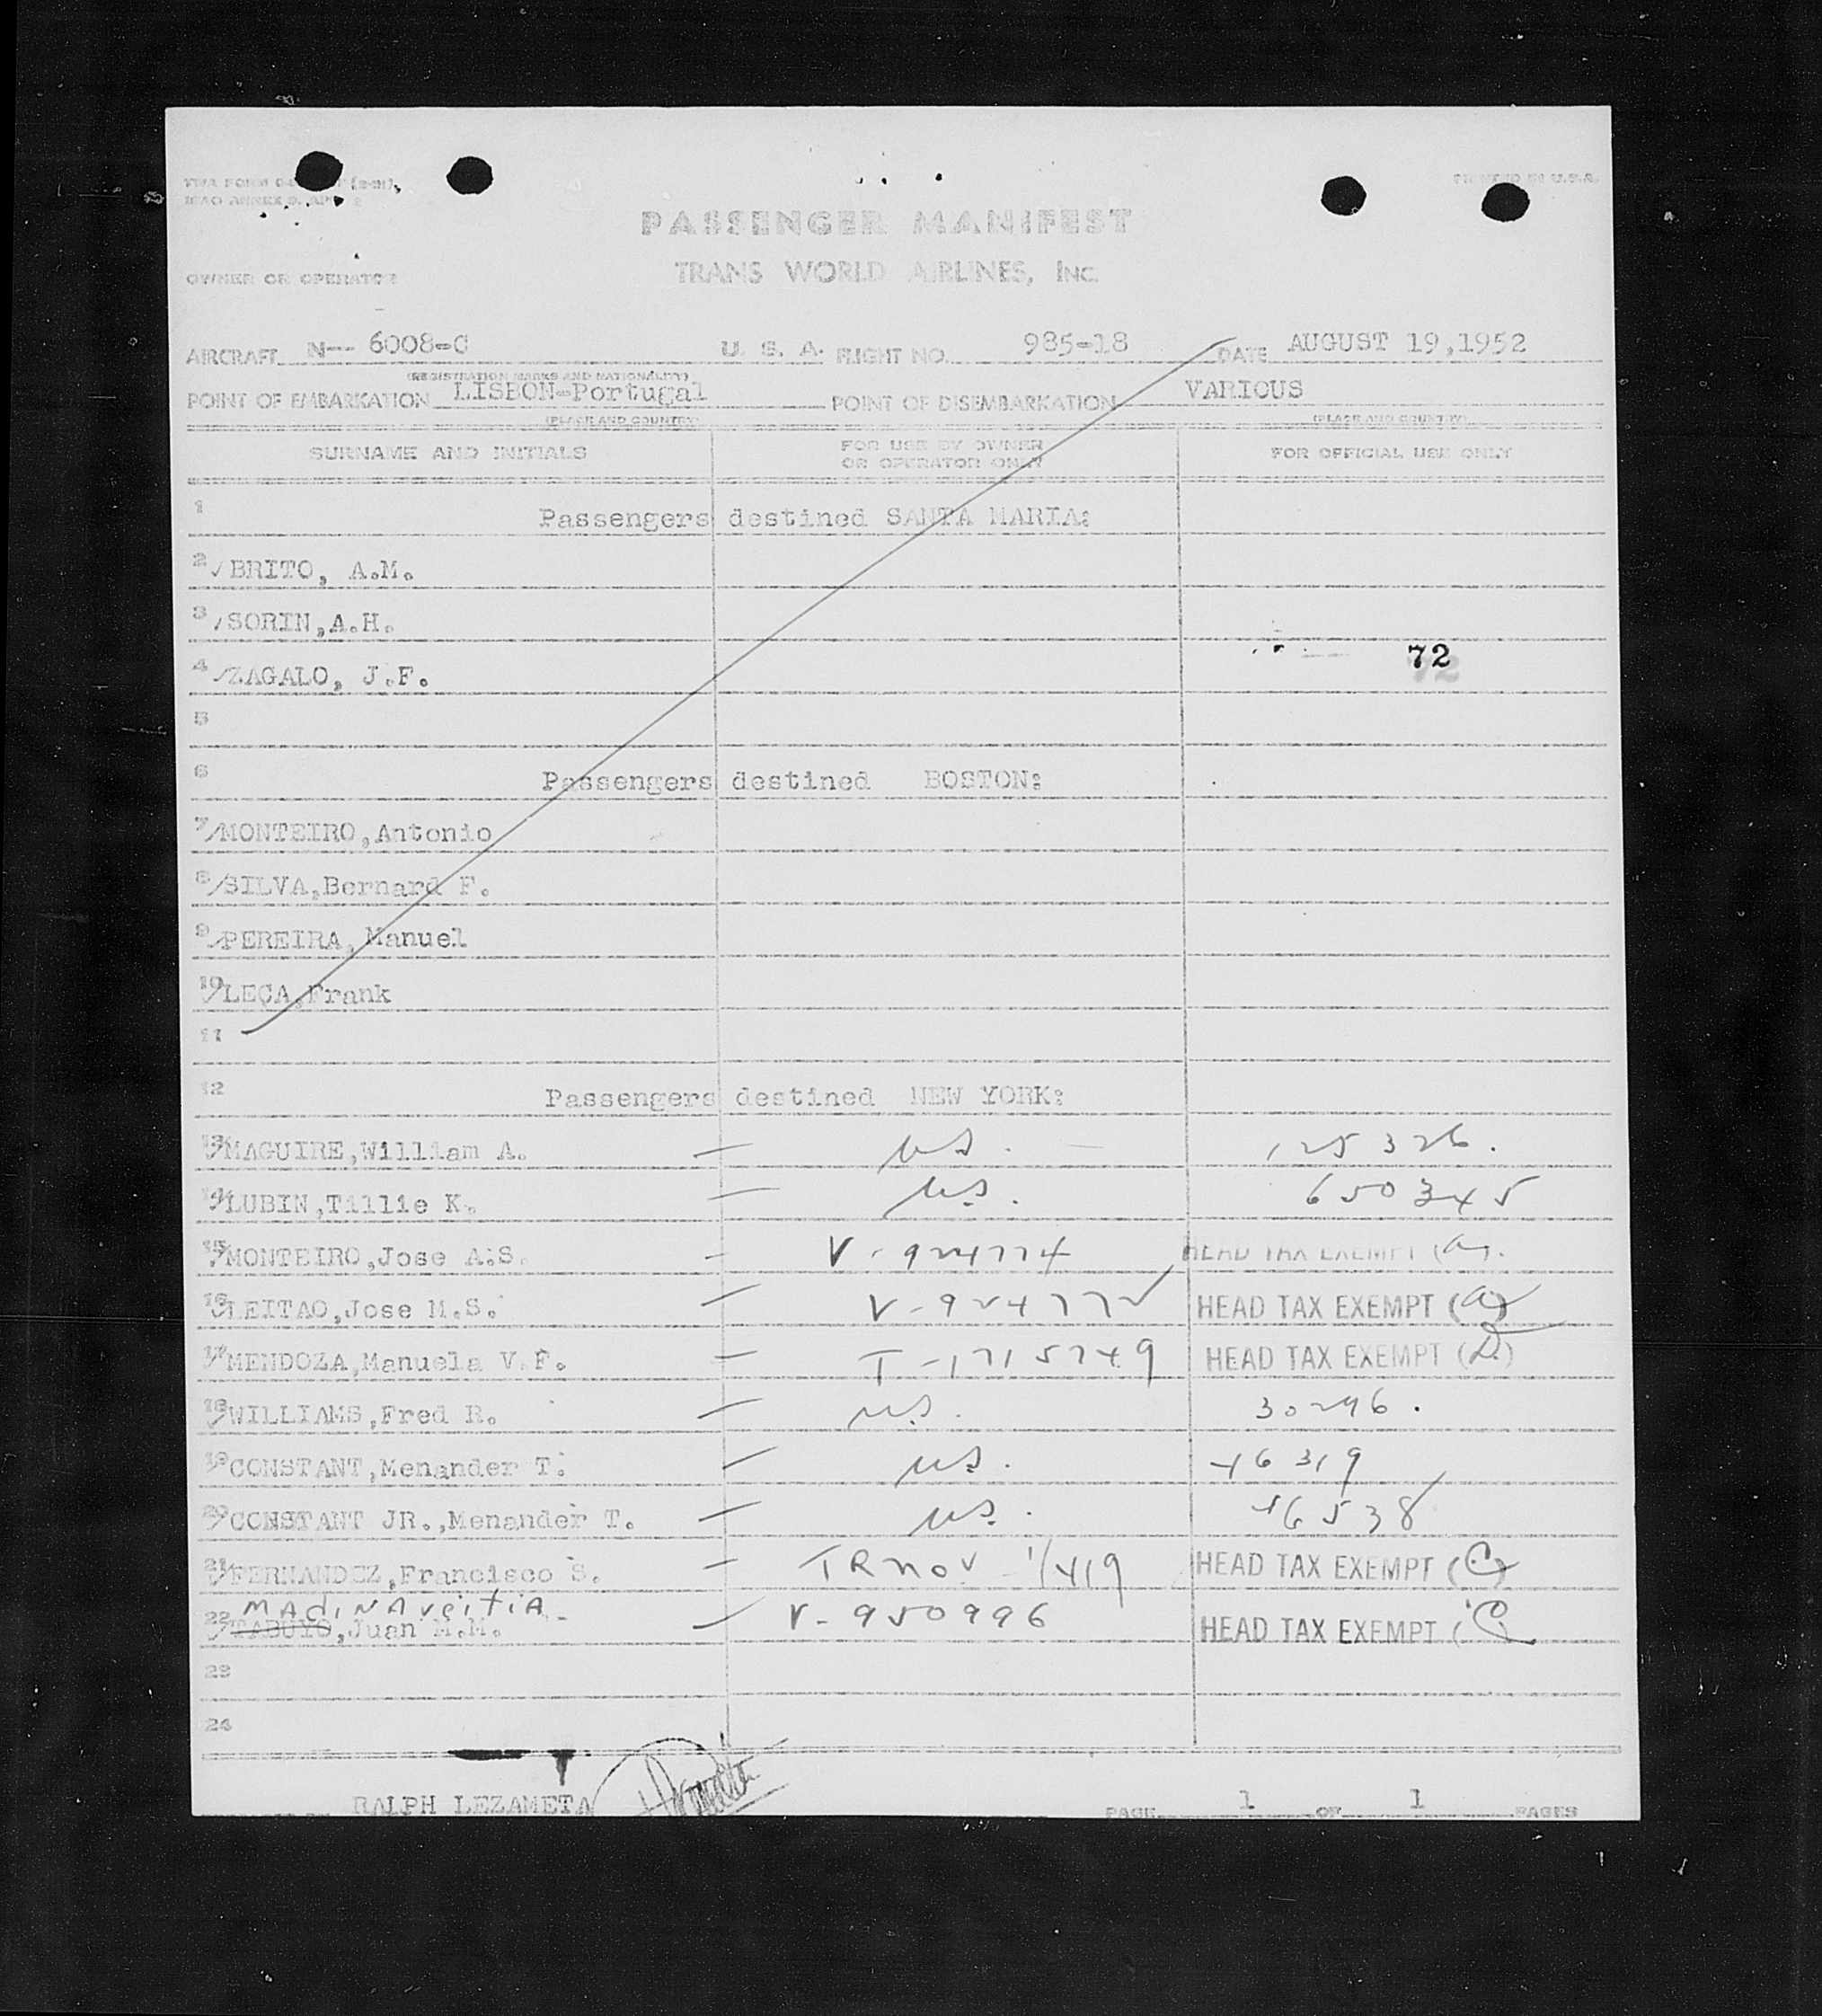 PRINTED IN U.S.A.
PASSENGER MANIFEST
TRANS WORLD AIRLINES, INC.
OWNER OR OPERATOR
AIRCRAFT N-- 6008-C U. S. A. FLIGHT NO. 985-18 DATE AUGUST 19,1952
(REGISTRATION MARKS AND NATIONALITY)
POINT OF EMBARKATION LISBON-Portugal POINT OF DISEMBARKATION VARIOUS
(PLACE AND COUNTRY) (PLACE AND COUNTRY)
SURNAME AND INITIALS FOR USE BY OWNER OR OPERATOR ONLY FOR OFFICIAL USE ONLY
1 Passengers destined SANTA MARIA:
2 BRITO, A.M.
3 SORIN,A.H.
4 ZAGALO, J.F. 72
5
6 Passengers destined BOSTON:
7 MONTEIRO,Antonio
8 SILVA,Bernard F.
9 PEREIRA,Manuel
10 LEÇA,Frank
11
12 Passengers destined NEW YORK:
13 MAGUIRE,William A. — U.S. 125326.
14 LUBIN,Tillie K. — U.S. 650345
15 MONTEIRO,Jose A.S. — V-924774 HEAD TAX EXEMPT (a)
16 LEITAO,Jose M.S. — V-924772 HEAD TAX EXEMPT (a)
17 MENDOZA,Manuela V.F. — T-1715749 HEAD TAX EXEMPT (D)
18 WILLIAMS,Fred R. — U.S. 30296.
19 CONSTANT,Menander T. — U.S. 46319
20 CONSTANT JR.,Menander T. — U.S. 46538
21 FERNANDEZ,Francisco S. — HEAD TAX EXEMPT (C)
MADINAVEITIA
22 TABUYO,Juan M.M. — V-950996 HEAD TAX EXEMPT (C)
23
24
RALPH LEZAMETA PAGE 1 OF 1 PAGES